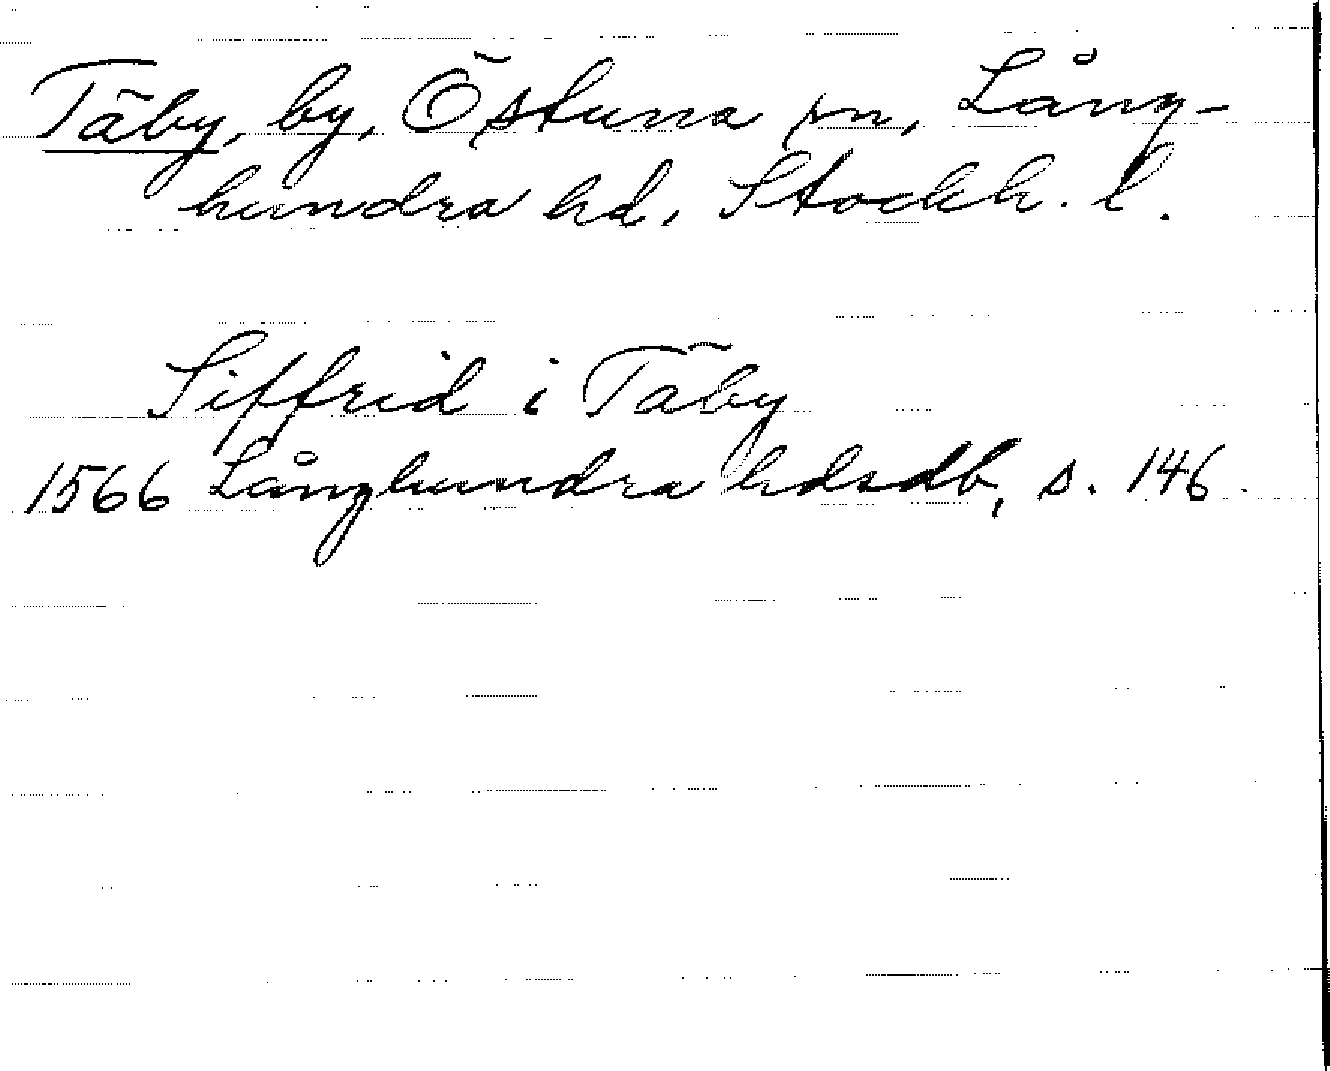 Täby, by, Östuna sn, Lång-
hundra hd, Stockh. l.
Siffrid i Täby
1566 Långhundra hdsdb, s. 146.